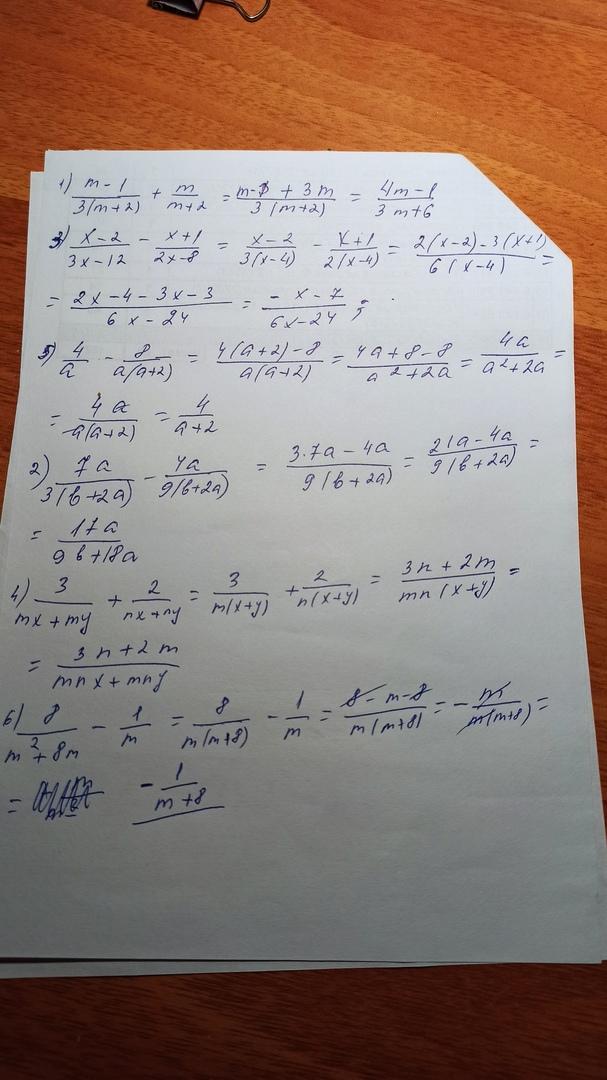 1) (m-1)/(3(m+2)) + m/(m+2) = (m-1+3m)/(3(m+2)) = (4m-1)/(3m+6)
3) (x-2)/(3x-12) - (x+1)/(2x-8) = (x-2)/(3(x-4)) - (x+1)/(2(x-4)) = (2(x-2)-3(x+1))/(6(x-4)) =
= (2x-4-3x-3)/(6x-24) = (-x-7)/(6x-24);
5) 4/a - 8/(a(a+2)) = (4(a+2)-8)/(a(a+2)) = (4a+8-8)/(a²+2a) = 4a/(a²+2a) =
= 4a/(a(a+2)) = 4/(a+2)
2) 7a/(3(b+2a)) - 4a/(9(b+2a)) = (3·7a-4a)/(9(b+2a)) = (21a-4a)/(9(b+2a)) =
= 17a/(9b+18a)
4) 3/(mx+my) + 2/(nx+ny) = 3/(m(x+y)) + 2/(n(x+y)) = (3n+2m)/(mn(x+y)) =
= (3n+2m)/(mnx+mny)
6) 8/(m²+8m) - 1/m = 8/(m(m+8)) - 1/m = (8-m-8)/(m(m+8)) = -m/(m(m+8)) =
= -1/(m+8)